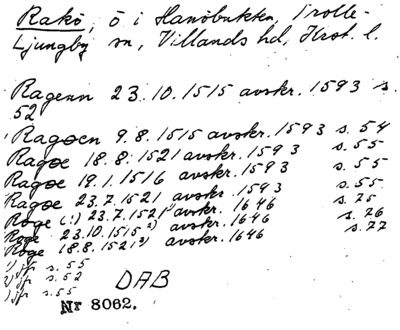 Rakö, ö i Hanöbukten, Trolle-
Ljungby sn, Villands hd, Krist. l.
Ragenn 23.10.1515 avskr. 1593 s.
52
Ragøen 9.8.1515 avskr. 1593 s. 54
Ragøe 18.8.1521 avskr. 1593 s. 55
Ragøe 19.1.1516 avskr. 1593 s. 55
Ragøe 23.7.1521 avskr. 1593 s. 55
Roge (!) 23.7.1521¹⁾ avskr. 1646 s. 25
Roge 23.10.1515²⁾ avskr. 1646 s. 26
Roge 18.8.1521³⁾ avskr. 1646 s. 27
1) jfr s. 55
2) jfr s. 52
3) jfr s. 55
DAB
Nr 8062.